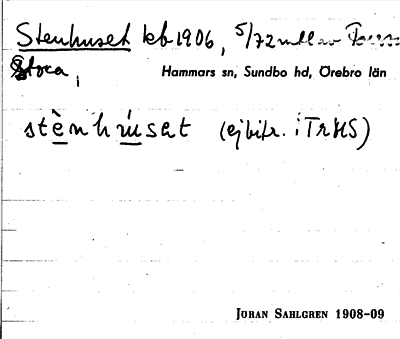 Stenhuset kb 1906, 5/72 mtl av
Stora,
Hammars sn, Sundbo hd, Örebro län
stènhu̇sat (ej bitr. i TrHS)
JÖRAN SAHLGREN 1908–09